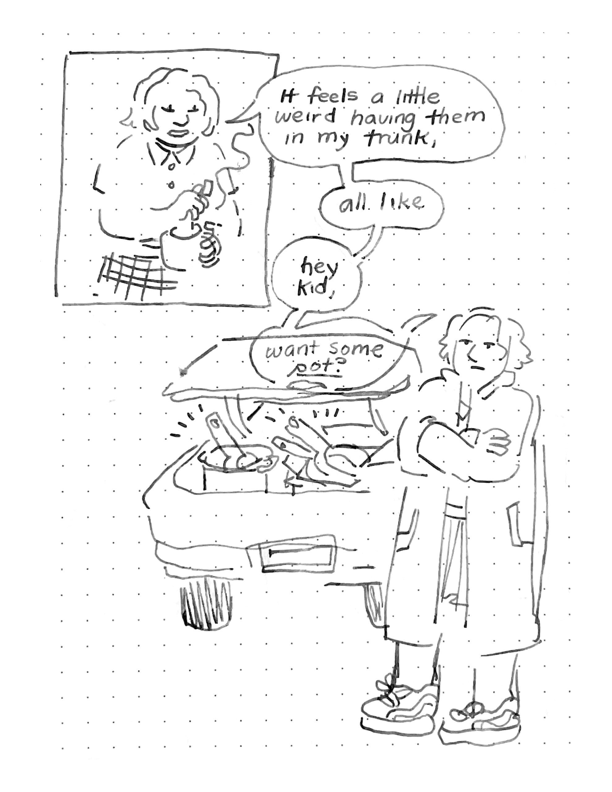 It feels a little
weird having them
in my trunk,
all like
hey
kid,
want some
pot?